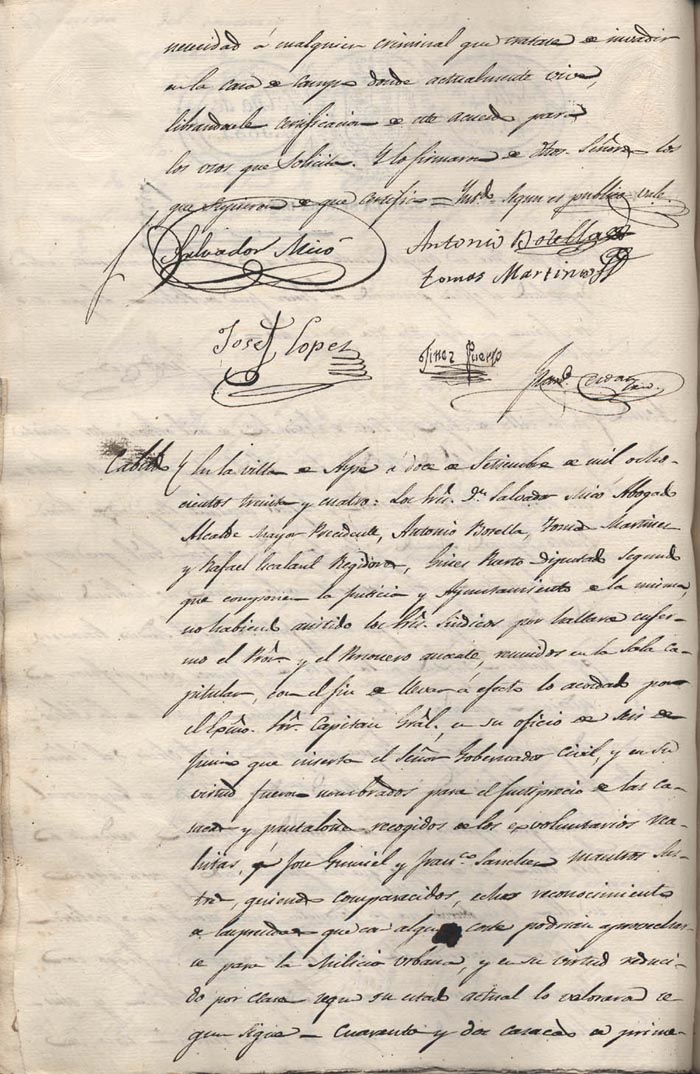 necesidad á cualquier criminal que tratase de invadir
en la casa de campo donde actualmente vive,
librandosele certificacion de este acuerdo para
los usos que solicita. Y lo firmaron de dhos. Señores los
que supieron de que certifico = publico vale
Salvador Micó
Antonio Botella
tomas Martinez
Josef Lopez
Jines Puerto
Cabildo En la villa de Aspe á doce de Setiembre de mil ocho-
cientos treinta y cuatro: Los Sres. Dn. Salvador Mico Abogado
Alcalde Mayor Presidente, Antonio Botella, Tomas Martinez
y Rafael Regidores, Gines Puerto Diputado segundo
que componen la Justicia y Ayuntamiento de la misma,
no habiendo asistido los Sres. Sindicos por hallarse enfer-
mo el Pror. y el Personero ausente, reunidos en la Sala Ca-
pitular, con el fin de llevar á efecto lo acordado por
el Exmo. Sor. Capitan Gral., en su oficio de seis de
Junio que inserta el Señor Gobernador Civil, y en su
virtud fueron nombrados para el justiprecio de las ca-
sacas y pantalones recogidos de los exvoluntarios rea-
listas, á Jose y Franco. Sanchez Maestros Sas-
tres, quienes comparecidos, echo reconocimiento
de las prendas que con algun coste podrian aprovechar-
se para la Milicia Urbana, y en su virtud reduci-
do por clases segun su estado actual lo valoraron se-
gun sigue = Cuarenta y dos casacas de prime-